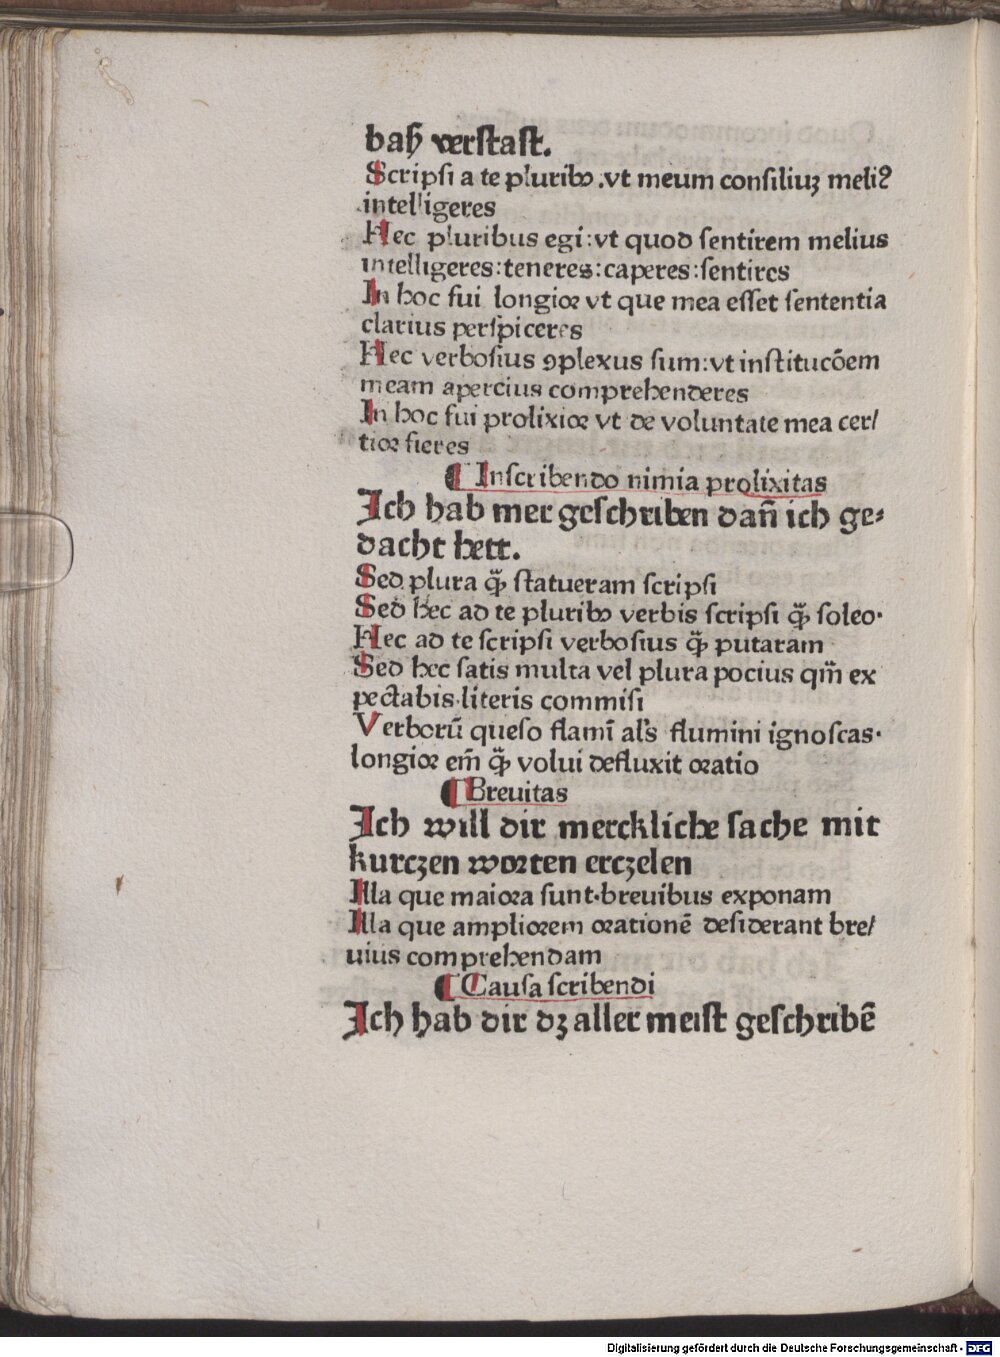 baß verstast.
Scripsi a te pluribꝰ .vt meum consiliuʒ meliꝰ
intelligeres
Hec pluribus egi:vt quod sentirem melius
intelligeres:teneres:caperes:sentires
In hoc fui longior vt que mea esset sententia
clarius perspiceres
Hec verbosius ꝯplexus sum:vt institucōem
meam apercius comprehenderes
In hoc fui prolixior vt de voluntate mea cer/
tior fieres
¶ Inscribendo nimia prolixitas
Ich hab mer geschriben dañ ich ge⸗
dacht hett.
Sed plura ꝙ̃ statueram scripsi
Sed hec ad te pluribꝰ verbis scripsi ꝙ̃ soleo·
Hec ad te scripsi verbosius ꝙ̃ putaram
Sed hec satis multa vel plura pocius qm̃ ex
pectabis·literis commisi
Verborū queso flamī al's flumini ignoscas·
longior em̃ ꝙ̃ volui defluxit oratio
¶ Breuitas
Ich will dir merckliche sache mit
kurczen worten erczelen
Illa que maiora sunt·breuibus exponam
Illa que ampliorem orationē desiderant bre/
uius comprehendam
¶ Causa scribendi
Ich hab dir dʒ aller meist geschribē
Digitalisierung gefördert durch die Deutsche Forschungsgemeinschaft - DFG